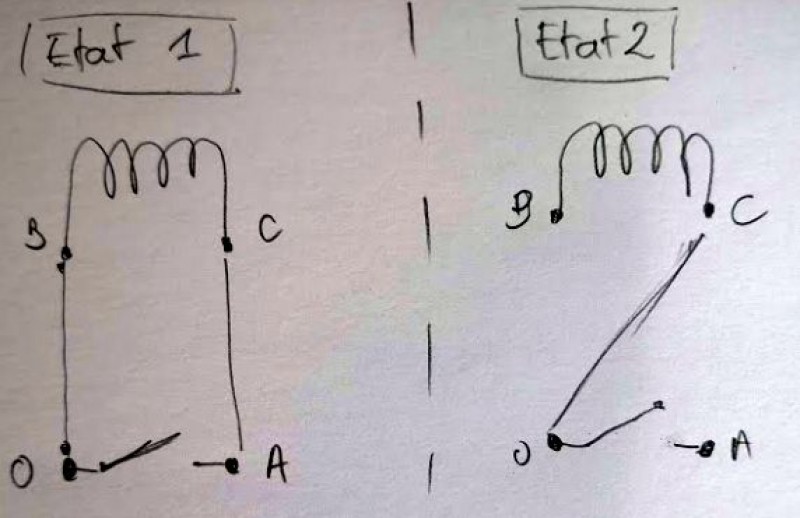 Etat 1
Etat 2
B
C
B
C
O
A
O
A